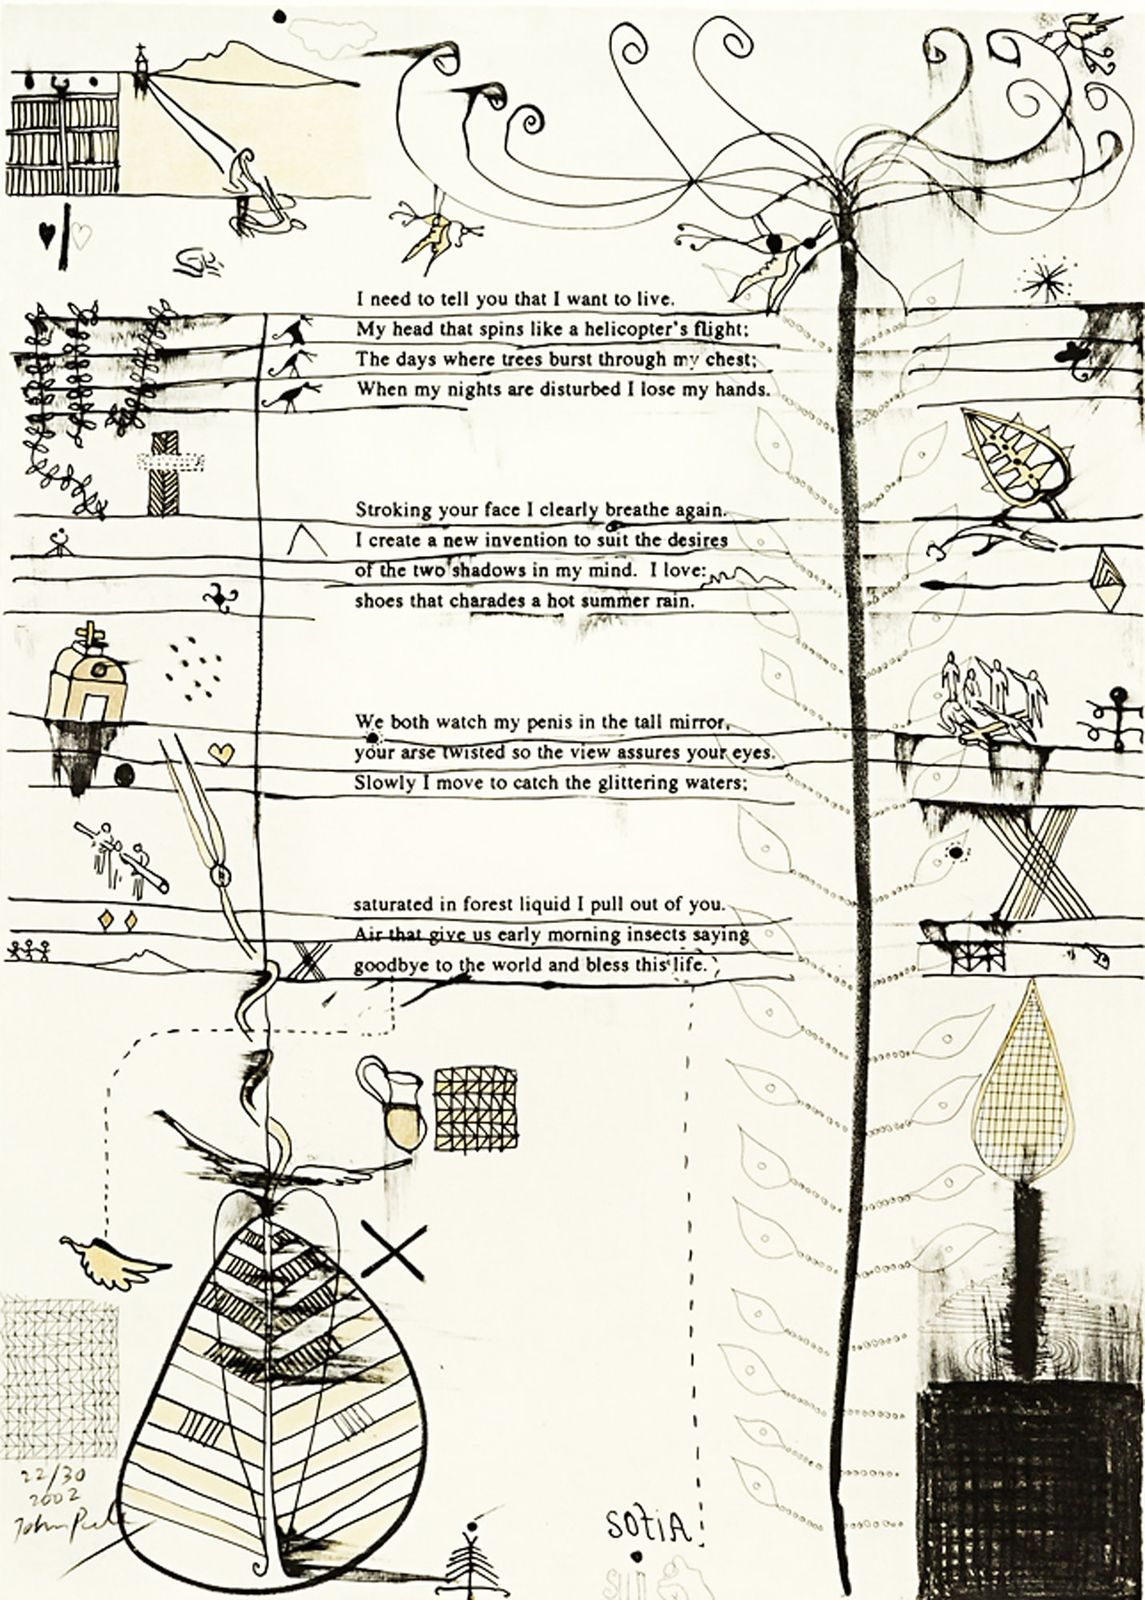 I need to tell you that I want to live.
My head that spins like a helicopter's flight;
The days where trees burst through my chest;
When my nights are disturbed I lose my hands.
Stroking your face I clearly breathe again.
I create a new invention to suit the desires
of the two shadows in my mind. I love:
shoes that charades a hot summer rain.
We both watch my penis in the tall mirror,
your arse twisted so the view assures your eyes.
Slowly I move to catch the glittering waters;
saturated in forest liquid I pull out of you.
Air that give us early morning insects saying
goodbye to the world and bless this life.
22/30
2002
John
sotiA